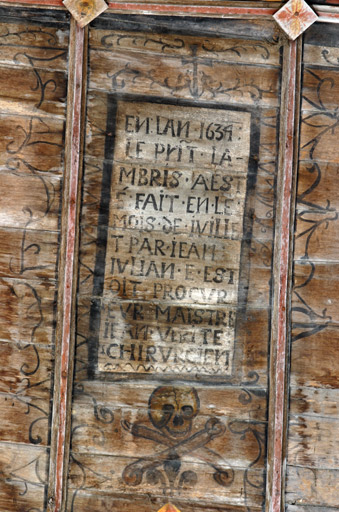 EN LAN 1634
LE PNT · LA-
MBRIS · A EST
É FAIT · EN · LE
MOIS · DE · IVILLE
T PAR · IEAN
IVLIAN · E · EST
DIT · PROCVR
EVR MAISTRE
CHIRVRGIEN